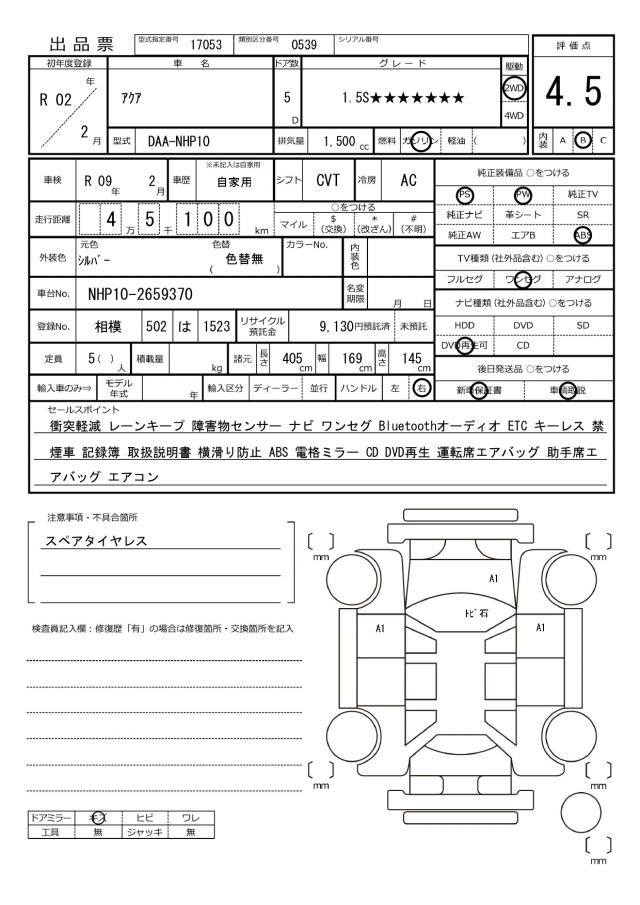 出品票 型式指定番号 17053 類別区分番号 0539 シリアル番号
評価点
4.5
内装 A B C
初年度登録 車名 ドア数 グレード 駆動
R 02 年 2 月
アクア 5 D 1.5S★★★★★★★ 2WD 4WD
型式 DAA-NHP10 排気量 1,500 cc 燃料 ガソリン 軽油 ( )
車検 R 09 年 2 月 車歴 ※未記入は自家用 自家用 シフト CVT 冷房 AC
走行距離 4 万 5 千 1 0 0 km
○をつける
マイル $(交換) *(改ざん) #(不明)
外装色 元色 シルバー 色替 ( 色替無 ) カラーNo. 内装色
車台No. NHP10-2659370 名変期限 月 日
登録No. 相模 502 は 1523 リサイクル預託金 9,130円預託済 未預託
定員 5( ) 人 積載量 kg 諸元 長さ 405 cm 幅 169 cm 高さ 145 cm
輸入車のみ⇒ モデル年式 年 輸入区分 ディーラー 並行 ハンドル 左 右
純正装備品 ○をつける
PS PW 純正TV
純正ナビ 革シート SR
純正AW エアB ABS
TV種類(社外品含む)○をつける
フルセグ ワンセグ アナログ
ナビ種類(社外品含む)○をつける
HDD DVD SD
DVD再生可 CD
後日発送品 ○をつける
新車保証書 車輌取説
セールスポイント
衝突軽減 レーンキープ 障害物センサー ナビ ワンセグ Bluetoothオーディオ ETC キーレス 禁
煙車 記録簿 取扱説明書 横滑り防止 ABS 電格ミラー CD DVD再生 運転席エアバッグ 助手席エ
アバッグ エアコン
注意事項・不具合箇所
スペアタイヤレス
検査員記入欄：修復歴「有」の場合は修復箇所・交換箇所を記入
〔 〕 mm
〔 〕 mm
A1
トビ石
A1
A1
〔 〕 mm
〔 〕 mm
〔 〕 mm
ドアミラー キズ ヒビ ワレ
工具 無 ジャッキ 無